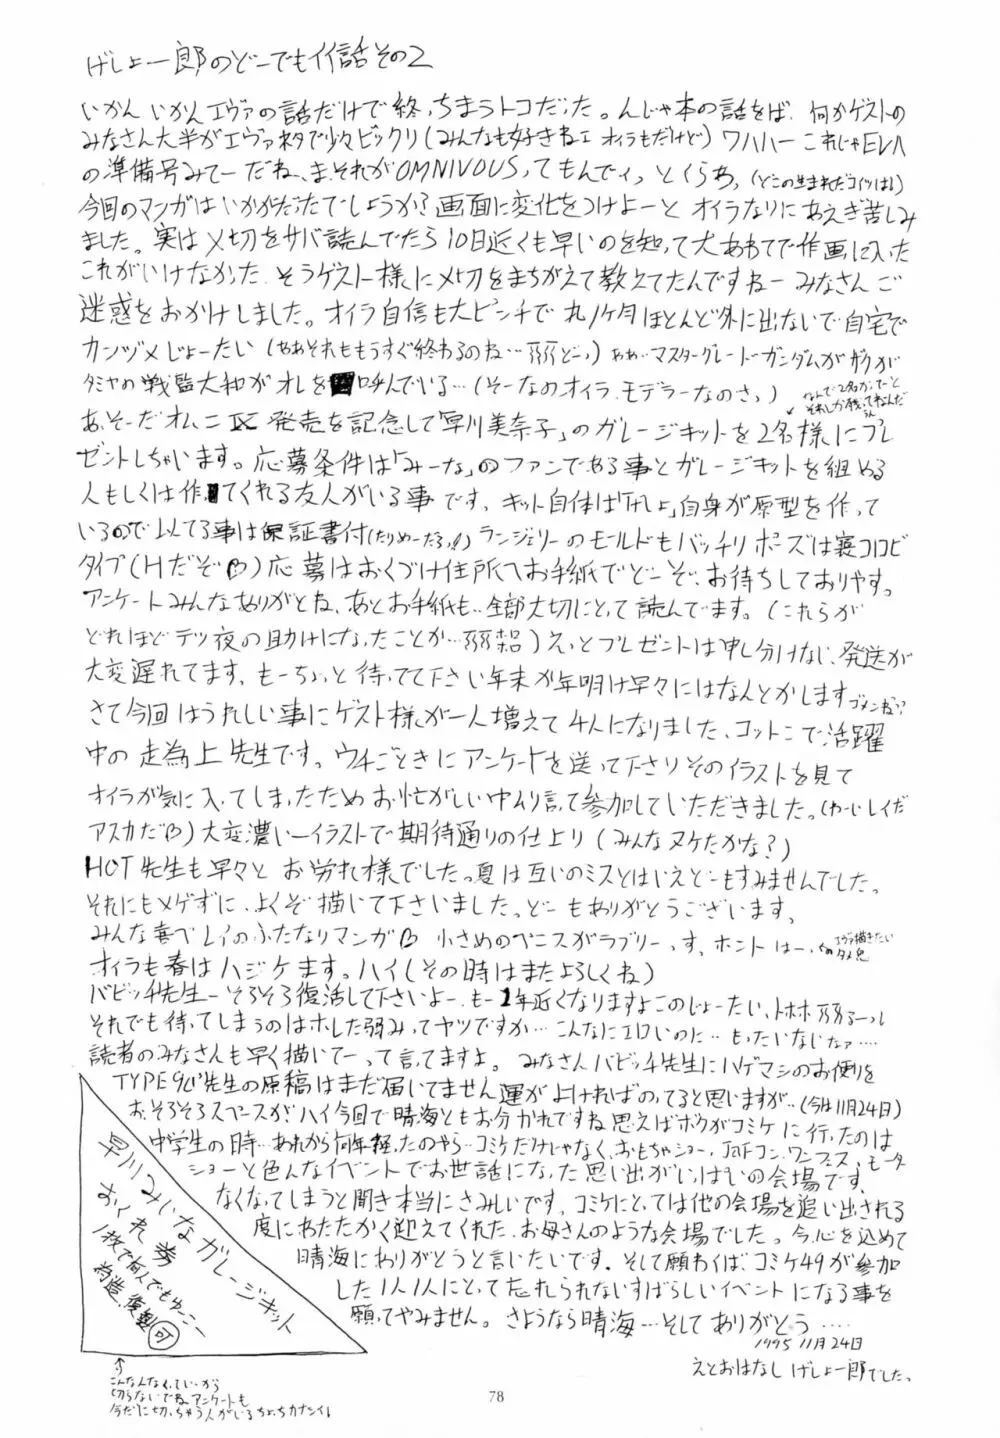 げしょ一郎のどーでもイイ話その2
いかんいかんエヴァの話だけで終っちまうトコだった。んじゃ本の話をば、何かゲストの
みなさん大半がエヴァネタで少々ビックリ(みんなも好きねェオイラもだけど)ワハハー これじゃEVA
の準備号みてーだね、ま、それがOMNIVOUSってもんでィっとくらぁ、(どこの生まれだコイツは!)
今回のマンガはいかがだったでしょうか?画面に変化をつけよーとオイラなりにあえぎ苦しみ
ました。実は〆切をサバ読んでたら10日近くも早いのを知って大あわてで作画に入った
これがいけなかった、そうゲスト様に〆切をまちがえて教えてたんですねーみなさんご
迷惑をおかけしました。オイラ自信も大ピンチで丸1ヶ月ほとんど外に出ないで自宅で
カンヅメじょーたい(ああそれももうすぐ終わるのね…)ああ…マスターグレードガンダムがボクが
タミヤの戦艦大和がオレを呼んでいる…(そーなのオイラ、モデラーなのさっ)
なんで2名かってーと
それしか残ってねんだ
あ、そーだオムニⅨ発売を記念して「早川美奈子」のガレージキットを2名様にプレ
ゼントしちゃいます。応募条件は「みーな」のファンである事とガレージキットを組める
人もしくは作ってくれる友人がいる事です、キット自体は「げしょ」自身が原型を作って
いるので似てる事は保証書付(たりめーだろっ!)ランジェリーのモールドもバッチリポーズは寝コロビ
タイプ(Hだぞ♡)応募はおくづけ住所へお手紙でどーぞ、お待ちしておりやす。
アンケートみんなありがとね、あとお手紙も…全部大切にとって読んでます。(これらが
どれほどテツ夜の助けになったことか…)えっとプレゼントは申し分けない、発送が
大変遅れてます、もーちょっと待ってて下さい年末か年明け早々にはなんとかします
さて今回はうれしい事にゲスト様が一人増えて4人になりました、コットンコミックで活躍
中の走為上先生です。ウチごときにアンケートを送って下さりそのイラストを見て
オイラが気に入ってしまったためお忙がしい中ムリ言って参加していただきました。(わーいレイだ
アスカだ♡)大変濃いーイラストで期待通りの仕上り(みんなヌケたかな?)
HOT先生も早々とお労れ様でした。夏は互いのミスとはいえどーもすみませんでした。
それにもメゲずに、よくぞ描いて下さいました。どーもありがとうございます。
みんな喜べレイのふたなりマンガ♡ 小さめのペニスがラブリーっす。ホントはー
オイラも春はハジケます。ハイ(その時はまたよろしくね)
バビッチ先生ーそろそろ復活して下さいよー、もー1年近くなりますよこのじょーたい、トホホ
それでも待ってしまうのはホレた弱みってヤツですか…こんなにエロいのに…もったいないなァ…
読者のみなさんも早く描いてーって言ってますよ。みなさんバビッチ先生にハゲマシのお便りを
TYPE90先生の原稿はまだ届いてません運がよければのってると思いますが…(今は11月24日)
お、そろそろスペースが、ハイ今回で晴海ともお分かれですね思えばボクがコミケに行ったのは
中学生の時…あれから何年経ったのやら…コミケだけじゃなく、おもちゃショー、JAFコン、ワンフェス、モータ
ショーと色んなイベントでお世話になった思い出がいっぱいの会場です、
なくなってしまうと聞き本当にさみしいです。コミケにとっては他の会場を追い出される
度にあたたかく迎えてくれた、お母さんのような会場でした。今、心を込めて
晴海にありがとうと言いたいです。そして願わくば、コミケ49が参加
した1人1人にとって忘れられないすばらしいイベントになる事を
願ってやみません。さようなら晴海…そしてありがとう…
1995 11月24日
えとおはなし げしょ一郎でした。
早川みいなガレージキット
おくれ券
1枚で何んでもゆーこー
為造、復製可
こんなんなくっていいから
切らないでね、アンケートも
今だに切っちゃう人がいるちょっちカナシイ
78